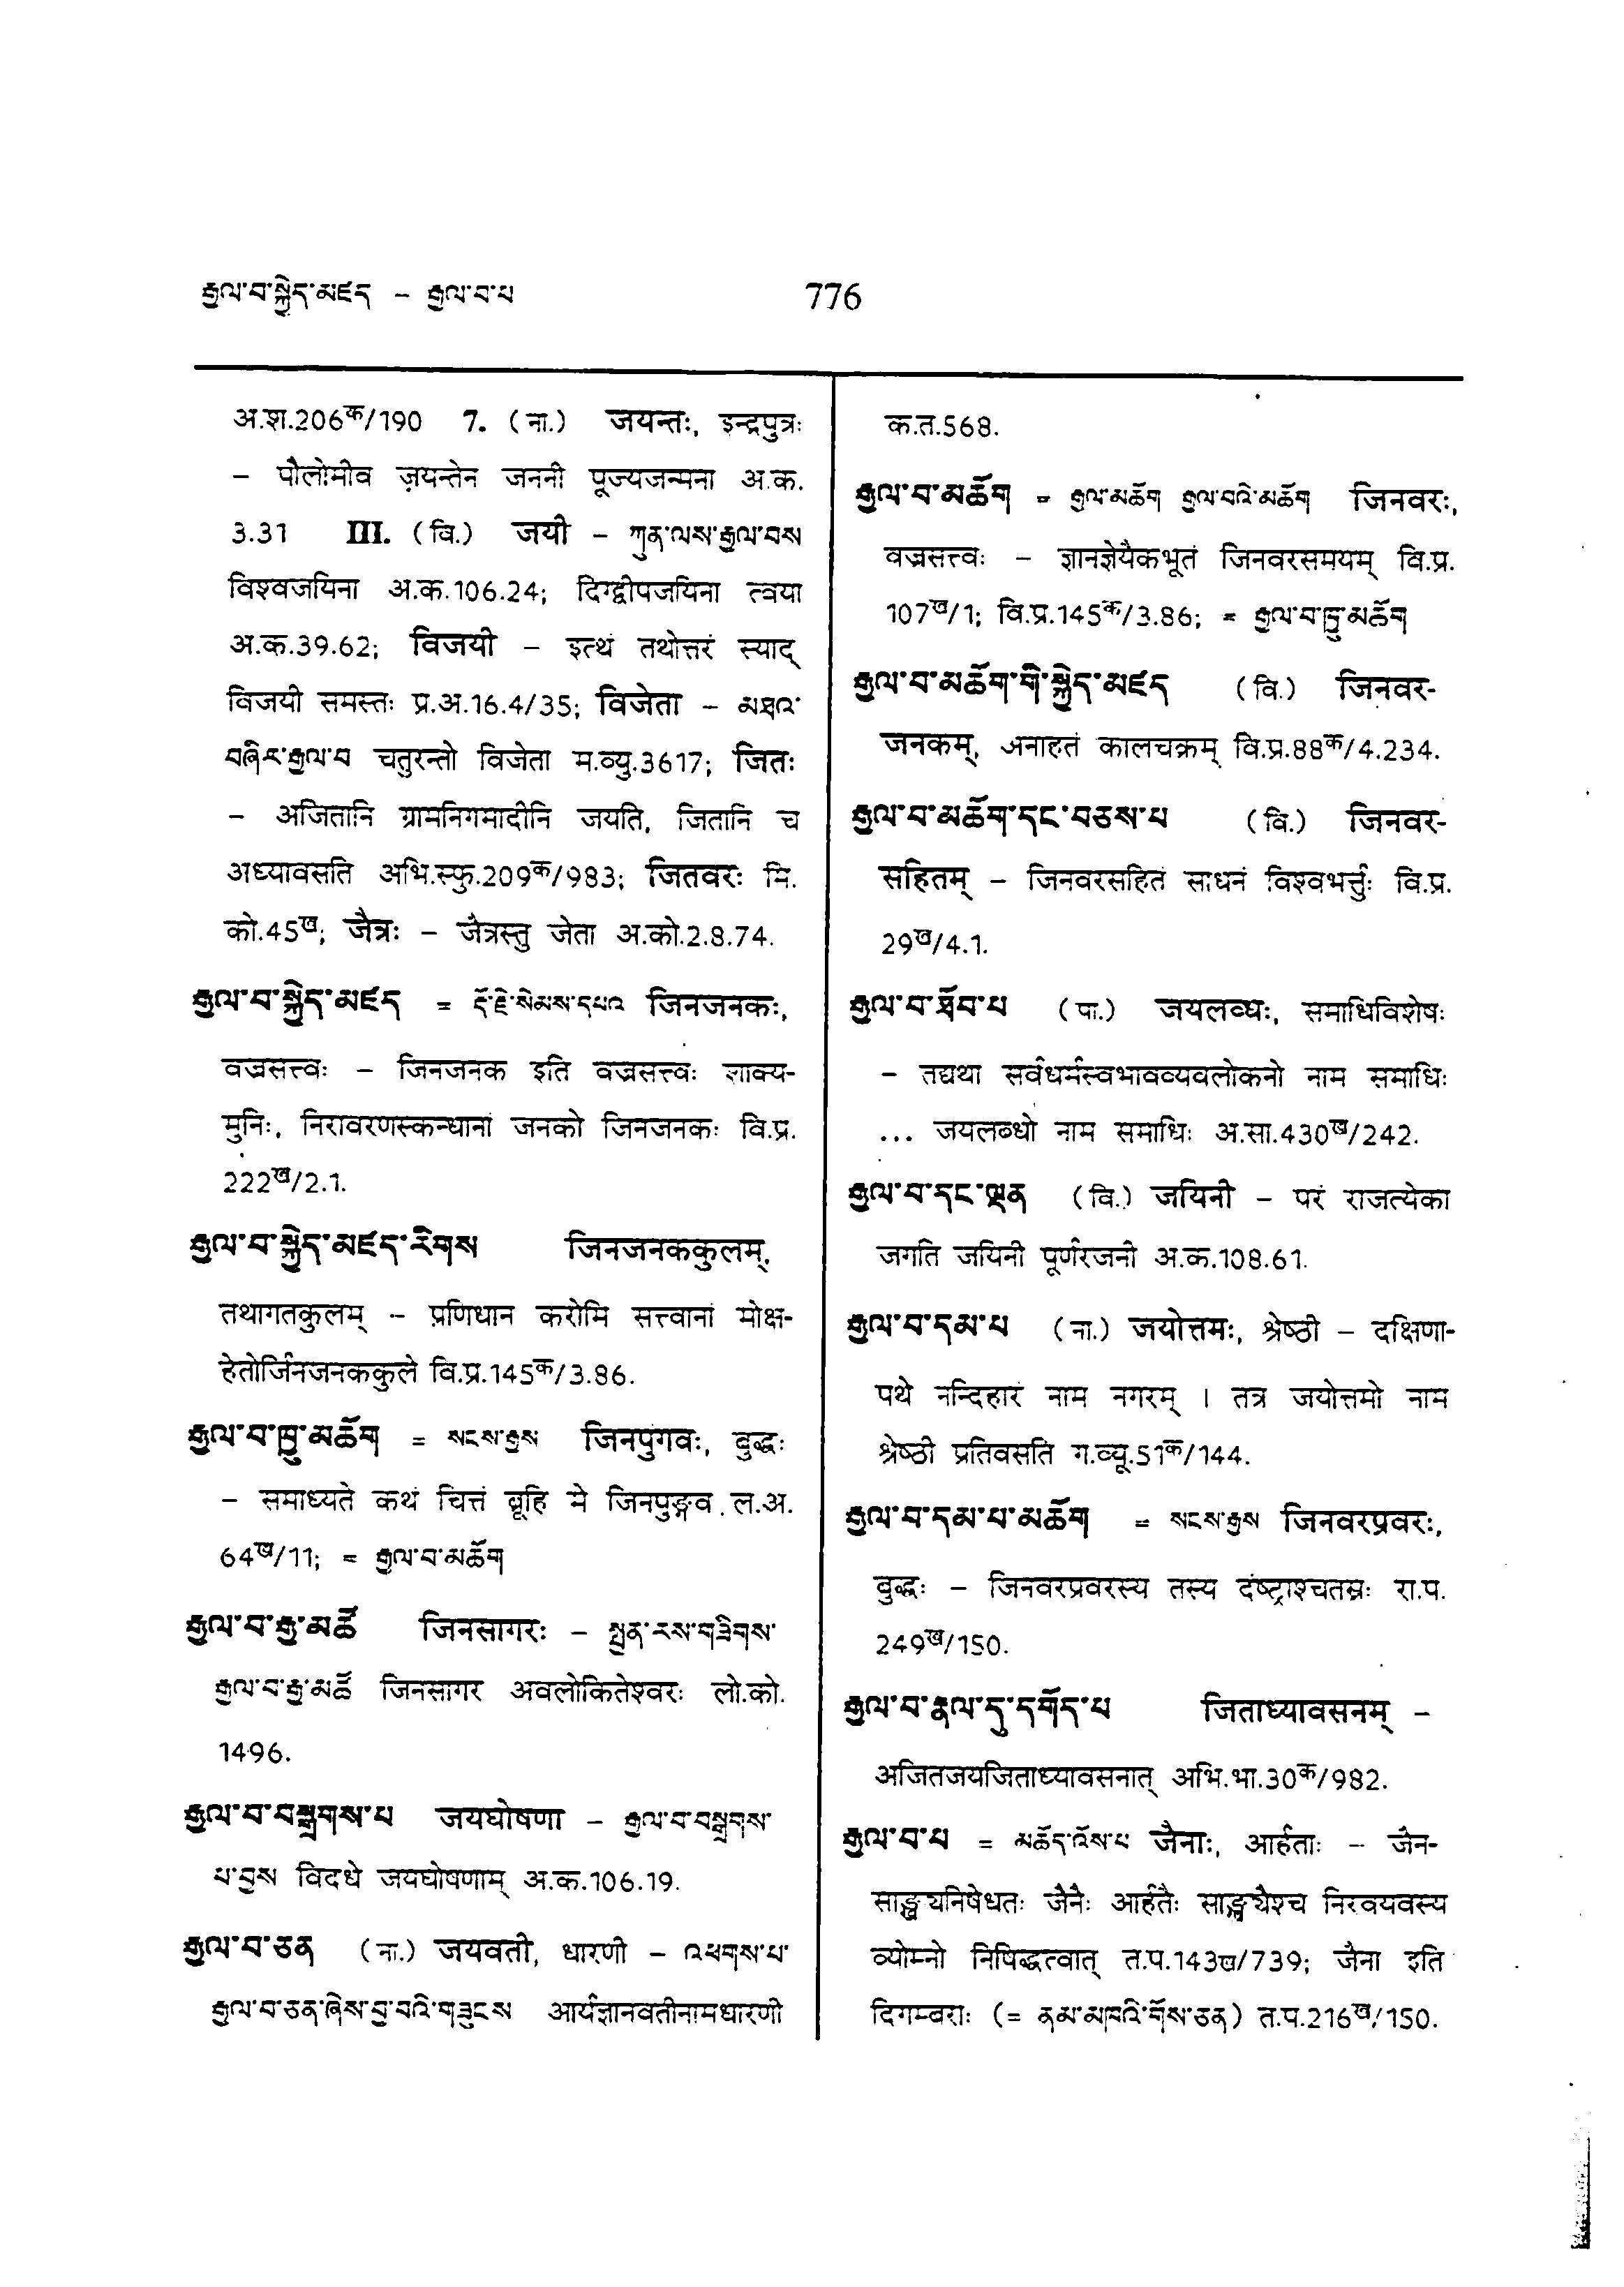 རྒྱལ་བ་སྐྱེད་མཛད – རྒྱལ་བ་པ
776
अ.श.206क/190 7. (ना.) जयन्तः, इन्द्रपुत्रः
– पौलोमीव जयन्तेन जननी पूज्यजन्मना अ.क.
3.31 III. (वि.) जयी – ཀུན་ལས་རྒྱལ་བས
विश्वजयिना अ.क.106.24; दिग्द्वीपजयिना त्वया
अ.क.39.62; विजयी – इत्थं तथोत्तरं स्याद्
विजयी समस्तः प्र.अ.16.4/35; विजेता – མཐའ་
བཞིར་རྒྱལ་བ चतुरन्तो विजेता म.व्यु.3617; जितः
– अजितानि ग्रामनिगमादीनि जयति, जितानि च
अध्यावसति अभि.स्फु.209क/983; जितवरः मि.
को.45ख; जैत्रः – जैत्रस्तु जेता अ.को.2.8.74.
རྒྱལ་བ་སྐྱེད་མཛད = རྡོ་རྗེ་སེམས་དཔའ जिनजनकः,
वज्रसत्त्वः – जिनजनक इति वज्रसत्त्वः शाक्य-
मुनिः, निरावरणस्कन्धानां जनको जिनजनकः वि.प्र.
222ख/2.1.
རྒྱལ་བ་སྐྱེད་མཛད་རིགས जिनजनककुलम्,
तथागतकुलम् – प्रणिधान करोमि सत्त्वानां मोक्ष-
हेतोर्जिनजनककुले वि.प्र.145क/3.86.
རྒྱལ་བ་ཁྱུ་མཆོག = སངས་རྒྱས जिनपुंगवः, बुद्धः
– समाध्यते कथं चित्तं ब्रूहि मे जिनपुङ्गव ल.अ.
64ख/11; = རྒྱལ་བ་མཆོག
རྒྱལ་བ་རྒྱ་མཚོ जिनसागरः – སྤྱན་རས་གཟིགས་
རྒྱལ་བ་རྒྱ་མཚོ जिनसागर अवलोकितेश्वरः लो.को.
1496.
རྒྱལ་བ་བསྒྲགས་པ जयघोषणा – རྒྱལ་བ་བསྒྲགས་
པ་བྱས विदधे जयघोषणाम् अ.क.106.19.
རྒྱལ་བ་ཅན (ना.) जयवती, धारणी – འཕགས་པ་
རྒྱལ་བ་ཅན་ཞེས་བྱ་བའི་གཟུངས आर्यज्ञानवतीनामधारणी
क.त.568.
རྒྱལ་བ་མཆོག = རྒྱལ་མཆོག རྒྱལ་བའི་མཆོག जिनवरः,
वज्रसत्त्वः – ज्ञानज्ञेयैकभूतं जिनवरसमयम् वि.प्र.
107ख/1; वि.प्र.145क/3.86; = རྒྱལ་བ་ཁྱུ་མཆོག
རྒྱལ་བ་མཆོག་གི་སྐྱེད་མཛད (वि.) जिनवर-
जनकम्, अनाहतं कालचक्रम् वि.प्र.88क/4.234.
རྒྱལ་བ་མཆོག་དང་བཅས་པ (वि.) जिनवर-
सहितम् – जिनवरसहितं साधनं विश्वभर्त्तुः वि.प्र.
29ख/4.1.
རྒྱལ་བ་ཐོབ་པ (पा.) जयलब्धः, समाधिविशेषः
– तद्यथा सर्वधर्मस्वभावव्यवलोकनो नाम समाधिः
... जयलब्धो नाम समाधिः अ.सा.430ख/242.
རྒྱལ་བ་དང་ལྡན (वि.) जयिनी – परं राजत्येका
जगति जयिनी पूर्णरजनी अ.क.108.61.
རྒྱལ་བ་དམ་པ (ना.) जयोत्तमः, श्रेष्ठी – दक्षिणा-
पथे नन्दिहारं नाम नगरम् । तत्र जयोत्तमो नाम
श्रेष्ठी प्रतिवसति ग.व्यू.51क/144.
རྒྱལ་བ་དམ་པ་མཆོག = སངས་རྒྱས जिनवरप्रवरः,
बुद्धः – जिनवरप्रवरस्य तस्य दंष्ट्राश्चतस्रः रा.प.
249ख/150.
རྒྱལ་བ་རྣལ་དུ་དགོད་པ जिताध्यावसनम् –
अजितजयजिताध्यावसनात् अभि.भा.30क/982.
རྒྱལ་བ་པ = མཆོད་འོས་པ जैनाः, आर्हताः – जैन-
साङ्ख्यनिषेधतः जैनैः आर्हतैः साङ्ख्यैश्च निरवयवस्य
व्योम्नो निषिद्धत्वात् त.प.143ख/739; जैना इति
दिगम्बराः (= ནམ་མཁའི་གོས་ཅན) त.प.216ख/150.